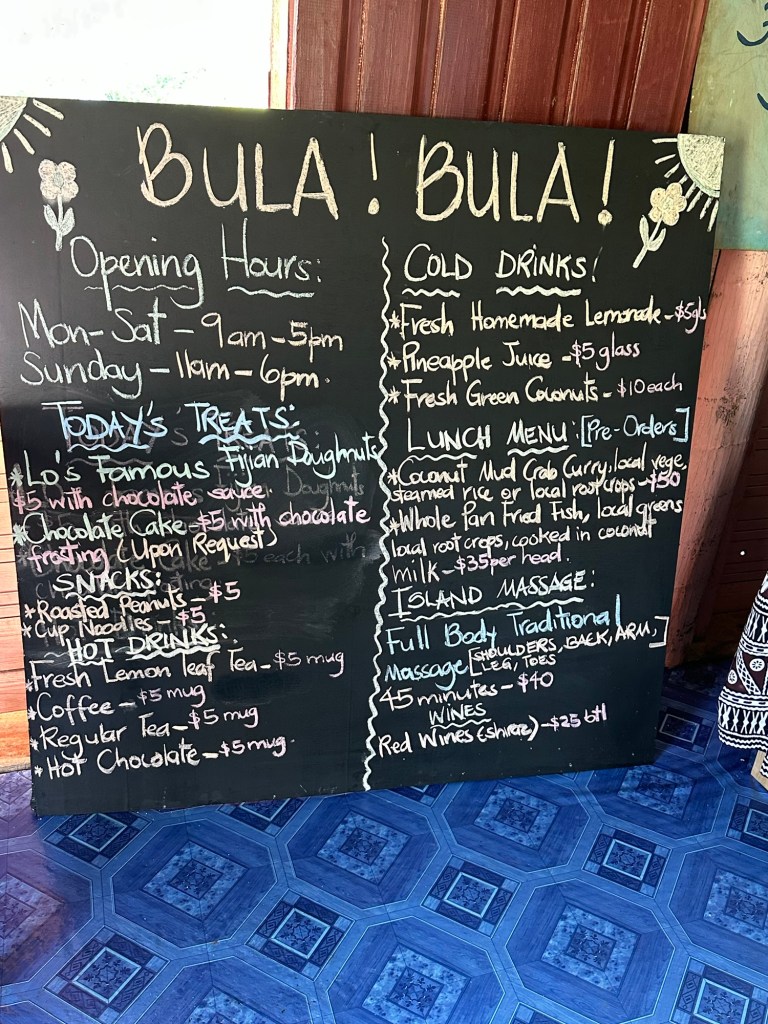 BULA! BULA!
Opening Hours:
Mon-Sat - 9am-5pm
Sunday - 11am-6pm.
TODAY'S TREATS:
*Lo's Famous Fijian Doughnuts
$5 with chocolate sauce
*Chocolate Cake - $5 with chocolate
frosting (Upon Request)
SNACKS:
*Roasted Peanuts - $5
*Cup Noodles - $5
HOT DRINKS:
*Fresh Lemon leaf Tea - $5 mug
*Coffee - $5 mug
*Regular Tea - $5 mug
*Hot Chocolate - $5 mug.
COLD DRINKS!
*Fresh Homemade Lemonade - $5gls
*Pineapple Juice - $5 glass
*Fresh Green Coconuts - $10 each
LUNCH MENU: [Pre-Orders]
*Coconut Mud Crab Curry, local vege,
steamed rice or local rootcrops - $50
*Whole Pan Fried Fish, local greens
local root crops, cooked in coconut
milk - $35 per head.
ISLAND MASSAGE:
Full Body Traditional
Massage [SHOULDERS, BACK, ARM,
LEG, TOES]
45 minutes - $40
WINES
Red Wines (shiraz) - $25 btl